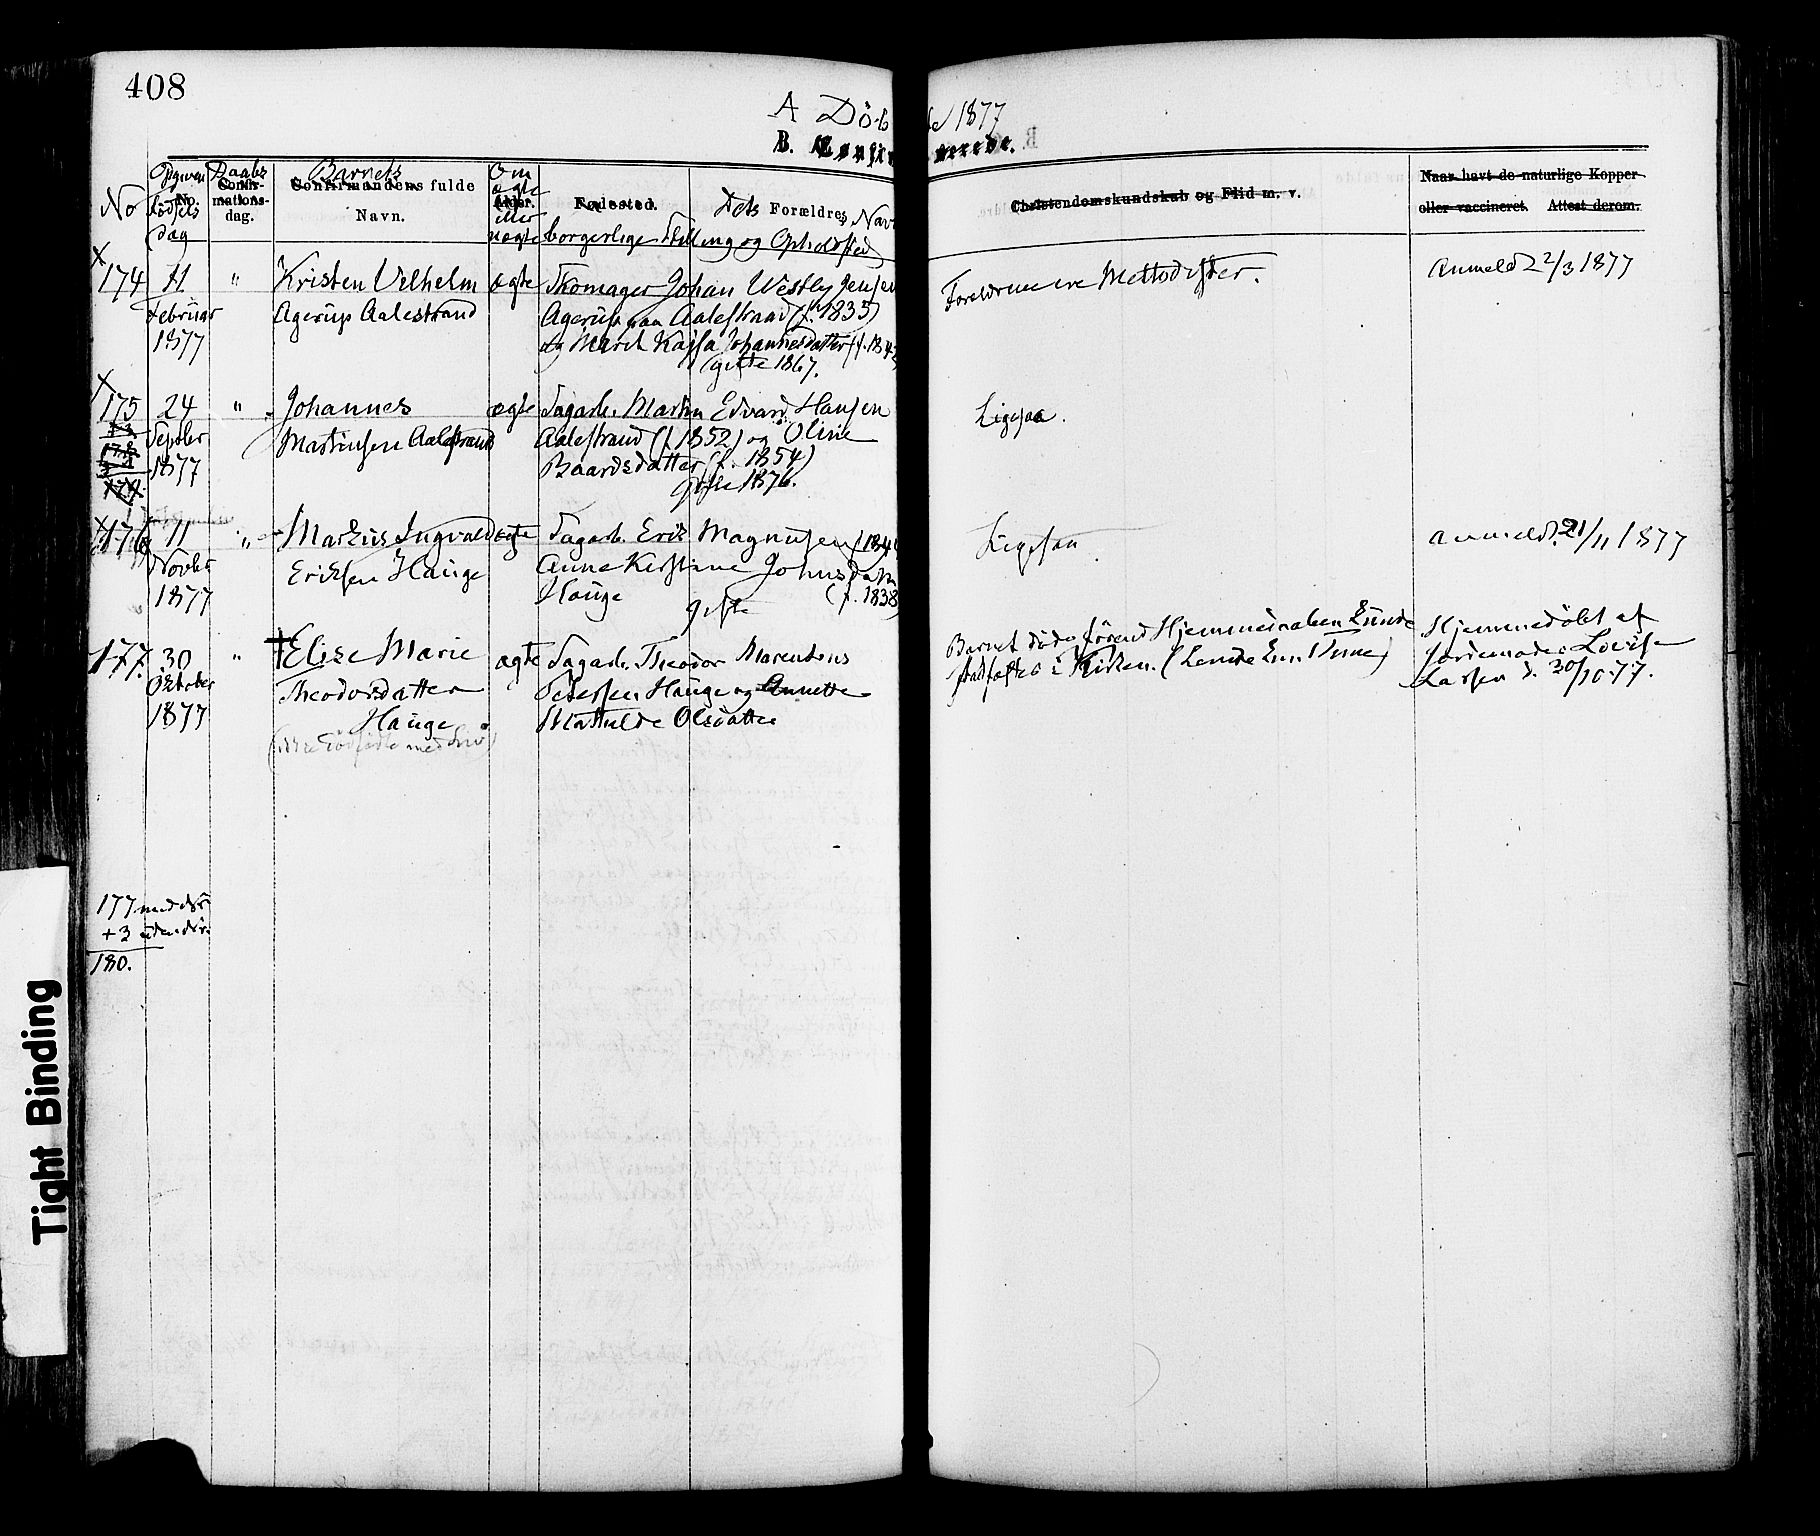 408
A Döb
te 1877
B. Confir
merede.
No
Opgiven Fødsels dag
No.
Daabs
Confir-
mations-
dag.
Barnets
Confirmandens fulde
Navn.
Om ægte eller uægte
Alder.
Fødested.
Dets Forældres Nav
borgerlige Stilling og Opholdsted
Christendomskundskab og Flid m. v.
Naar havt de naturlige Kopper
eller vaccineret. Attest derom.
174 11 " Kristen Vilhelm ægte Skomager Johan Westby Jensen
Februar Agerup Aalestrand Agerup paa Aalestrand (f. 1835)
1877 og Kajsa Johannesdatter (f. 184
gifte 1867.
Forældrene ere Methodister.
Anmeldt 22/3 1877
175 24 " Johannes ægte Sagarb. Martin Edvard Hansen
Septbr Martinsen Aalestrand Aalestrand (f. 1852) og Oline
1877 Baardsdatter (f. 1854)
gifte 1876.
Ligesaa.
176 11 " Markus Ingvald ægte Sagarb. Erik Magnusen (184
Novbr Eriksen Hauge Anne Kirstine Johnsdatter
1877 Hauge (f. 1838)
gifte
Ligesaa
Anmeldt 21/11 1877
177. 30 " †Elise Marie ægte Sagarb. Theodor Marentius
Oktober Theodorsdatter Petersen Hauge og Annette
1877 Hauge Mathilde Olsdatter
Barnet døde førend Hjemmedaaben kunde
stadfæstes i Kirken.
Hjemmedøbt af
Jordemoder Lovise
Larsen d. 30/10 77.
177 med
+3 uden
180.
Tight Binding